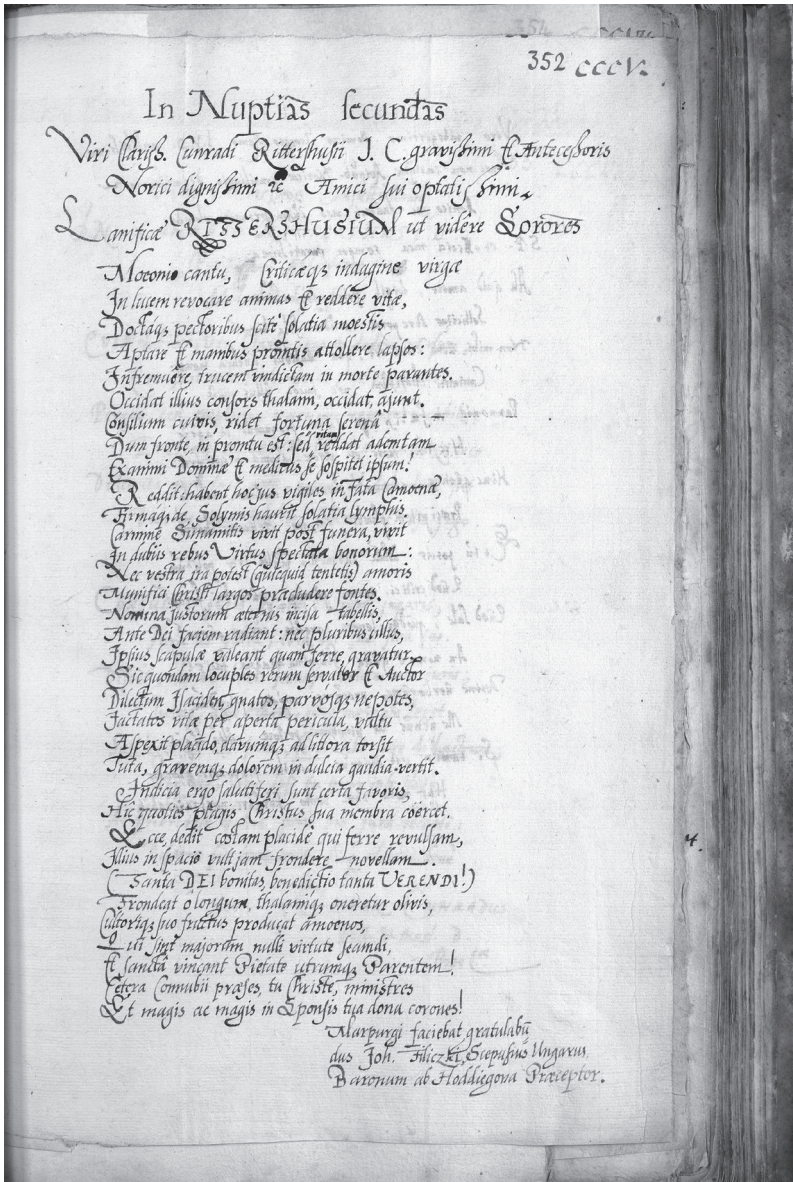 352 CCCV.
In Nuptias secundas
Viri Clariss. Cunradi Rittershusii J. C. gravissimi & Antecessoris
Norici dignissimi &c Amici sui optatissimi.
Lanificæ RITTERSHUSIUM ut vidêre Sorores
Moeonio cantu, Criticæq; indagine virgæ
In lucem revocare animas & reddere vitæ,
Doctaq; pectoribus scite solatia moestis
Aptare & manibus promtis attollere lapsos:
Infremuêre, trucem vindictam in morte parantes.
Occidat illius consors thalami, occidat, ajunt.
Consilium cuivis, ridet fortuna serenâ
Dum fronte, in promtu est: sed vitam reddat ademtam
Exanimi Dominæ & medicus se sospitet ipsum!
Reddit: habent hoc jus vigiles in fata Camoenæ,
Solymis haurit solatia lymphis,
Carmine Sunamitis vivit post funera, vivit
In dubiis rebus Virtus spectata bonorum:
Nec vestra ira potest (quicquid tentetis) amoris
Munifici Christi largos præcludere fontes.
Nomina justorum æternis incisa tabellis,
Ante Dei faciem radiant: nec pluribus illius,
Ipsius scapulæ valeant quam ferre, gravatur.
Sic quondam locuples rerum servator & Auctor
Dilectum Isaciden, gnatos, parvosq; nepotes,
Jactatos vitæ per aperta pericula, vultu
Aspexit placido, clavumq; ad littora torsit
Tuta, gravemq; dolorem in dulcia gaudia vertit.
Indicia ergo salutiferi sunt certa favoris,
Hic quoties plagis Christus sua membra coërcet.
Ecce, dedit costam placidè qui ferre revulsam,
Illius in spacio vult jam frondere novellam.
(Tanta DEI bonitas, benedictio tanta VERENDI!)
Frondeat o longum, thalamiq; oneretur olivis,
Cultoriq; suo fructus producat amoenos,
Qui sint majorum nulli virtute secundi,
Et sanctâ vincant Pietate utrumq; Parentem!
Cetera Connubii præses, tu Christe, ministres
Et magis ac magis in Sponsis tua dona corones!
Marpurgi faciebat gratulabũ
dus Joh. Filiczki, Scepusius Ungarus,
Baronum ab Hoddiegova Præceptor.
4.